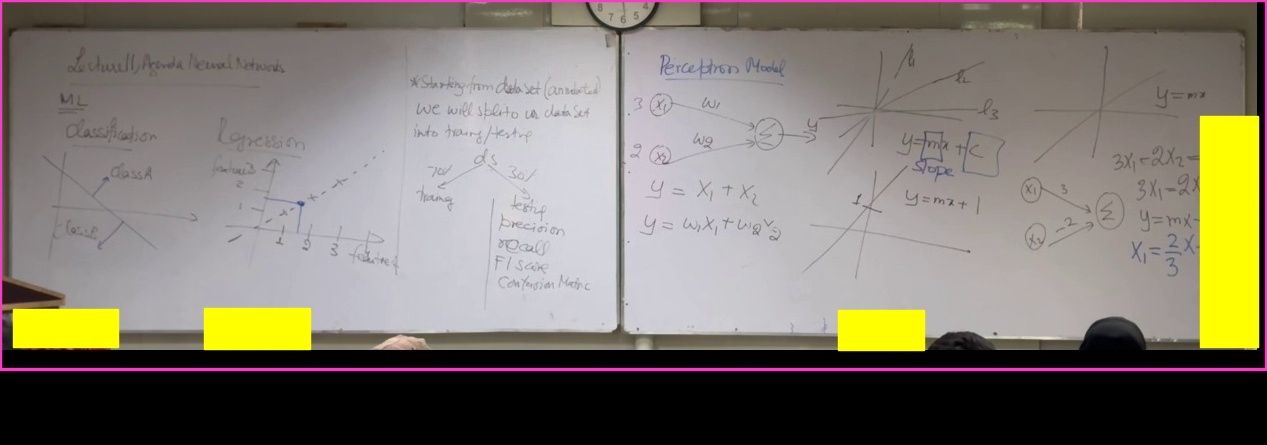 8 7 6 5 4
Lecture 11, Agenda Neural Networks
ML
Classification
Class A
Regression
2
1
1 2 3
*Starting from dataset (annotated)
we will split to us dataset
into traing/testng
ds
70% 30%
traing
testng
precision
recall
F1 score
Confusion Matric
Perceptron Model
3 X1 w1
2 X2 w2
Σ y
y = X1 + X2
y = w1X1 + w2X2
l1
l2
l3
y = mx + C
slope
1
y = mx + 1
y = mx
3X1 - 2X2 =
3X1 = 2X
y = mx
X1 = 2/3 X
X1 3
X2 -2
Σ